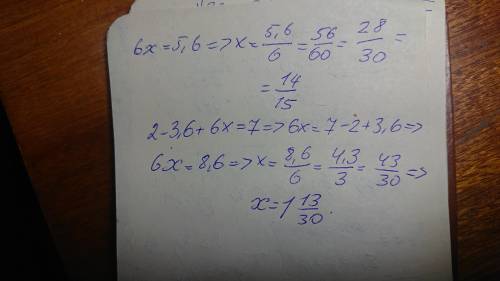 6x = 5,6 => x = 5,6/6 = 56/60 = 28/30 =
= 14/15
2 - 3,6 + 6x = 7 => 6x = 7 - 2 + 3,6 =>
6x = 8,6 => x = 8,6/6 = 4,3/3 = 43/30 =>
x = 1 13/30.